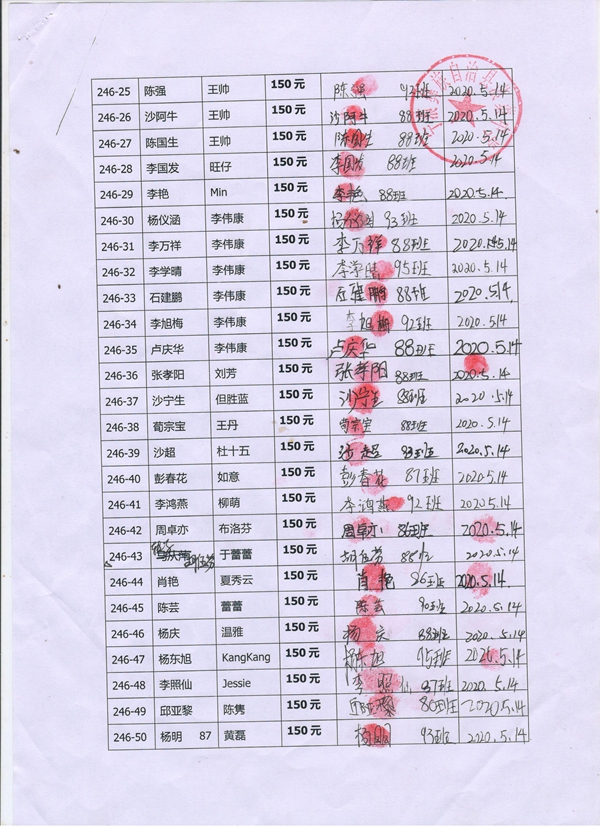 自治县
246-25 陈强 王帅 150元 陈强 93班 2020.5.14
246-26 沙阿牛 王帅 150元 沙阿牛 88班 2020.5.14
246-27 陈国生 王帅 150元 陈国生 88班 2020.5.14
246-28 李国发 旺仔 150元 李国发 88班 2020.5.14
246-29 李艳 Min 150元 李艳 88班 2020.5.14
246-30 杨仪涵 李伟康 150元 杨仪涵 93班 2020.5.14
246-31 李万祥 李伟康 150元 李万祥 88班 2020.5.14
246-32 李学晴 李伟康 150元 李学晴 95班 2020.5.14
246-33 石建鹏 李伟康 150元 石建鹏 88班 2020.5.14
246-34 李旭梅 李伟康 150元 李旭梅 92班 2020.5.14
246-35 卢庆华 李伟康 150元 卢庆华 88班 2020.5.14
246-36 张孝阳 刘芳 150元 张孝阳 88班 2020.5.14
246-37 沙宁生 但胜蓝 150元 沙宁生 88班 2020.5.14
246-38 荀宗宝 王丹 150元 荀宗宝 88班 2020.5.14
246-39 沙超 杜十五 150元 沙超 93班 2020.5.14
246-40 彭春花 如意 150元 彭春花 87班 2020.5.14
246-41 李鸿燕 柳萌 150元 李鸿燕 92班 2020.5.14
246-42 周卓亦 布洛芬 150元 周卓亦 86班 2020.5.14
246-43 于蕾蕾 150元 88班 2020.5.14
246-44 肖艳 夏秀云 150元 肖艳 86班 2020.5.14
246-45 陈芸 蕾蕾 150元 陈芸 90班 2020.5.14
246-46 杨庆 温雅 150元 杨庆 88班 2020.5.14
246-47 杨东旭 KangKang 150元 杨东旭 95班 2020.5.14
246-48 李照仙 Jessie 150元 李照仙 87班 2020.5.14
246-49 邱亚黎 陈隽 150元 邱亚黎 80班 2020.5.14
246-50 杨明 87 黄磊 150元 杨明 93班 2020.5.14